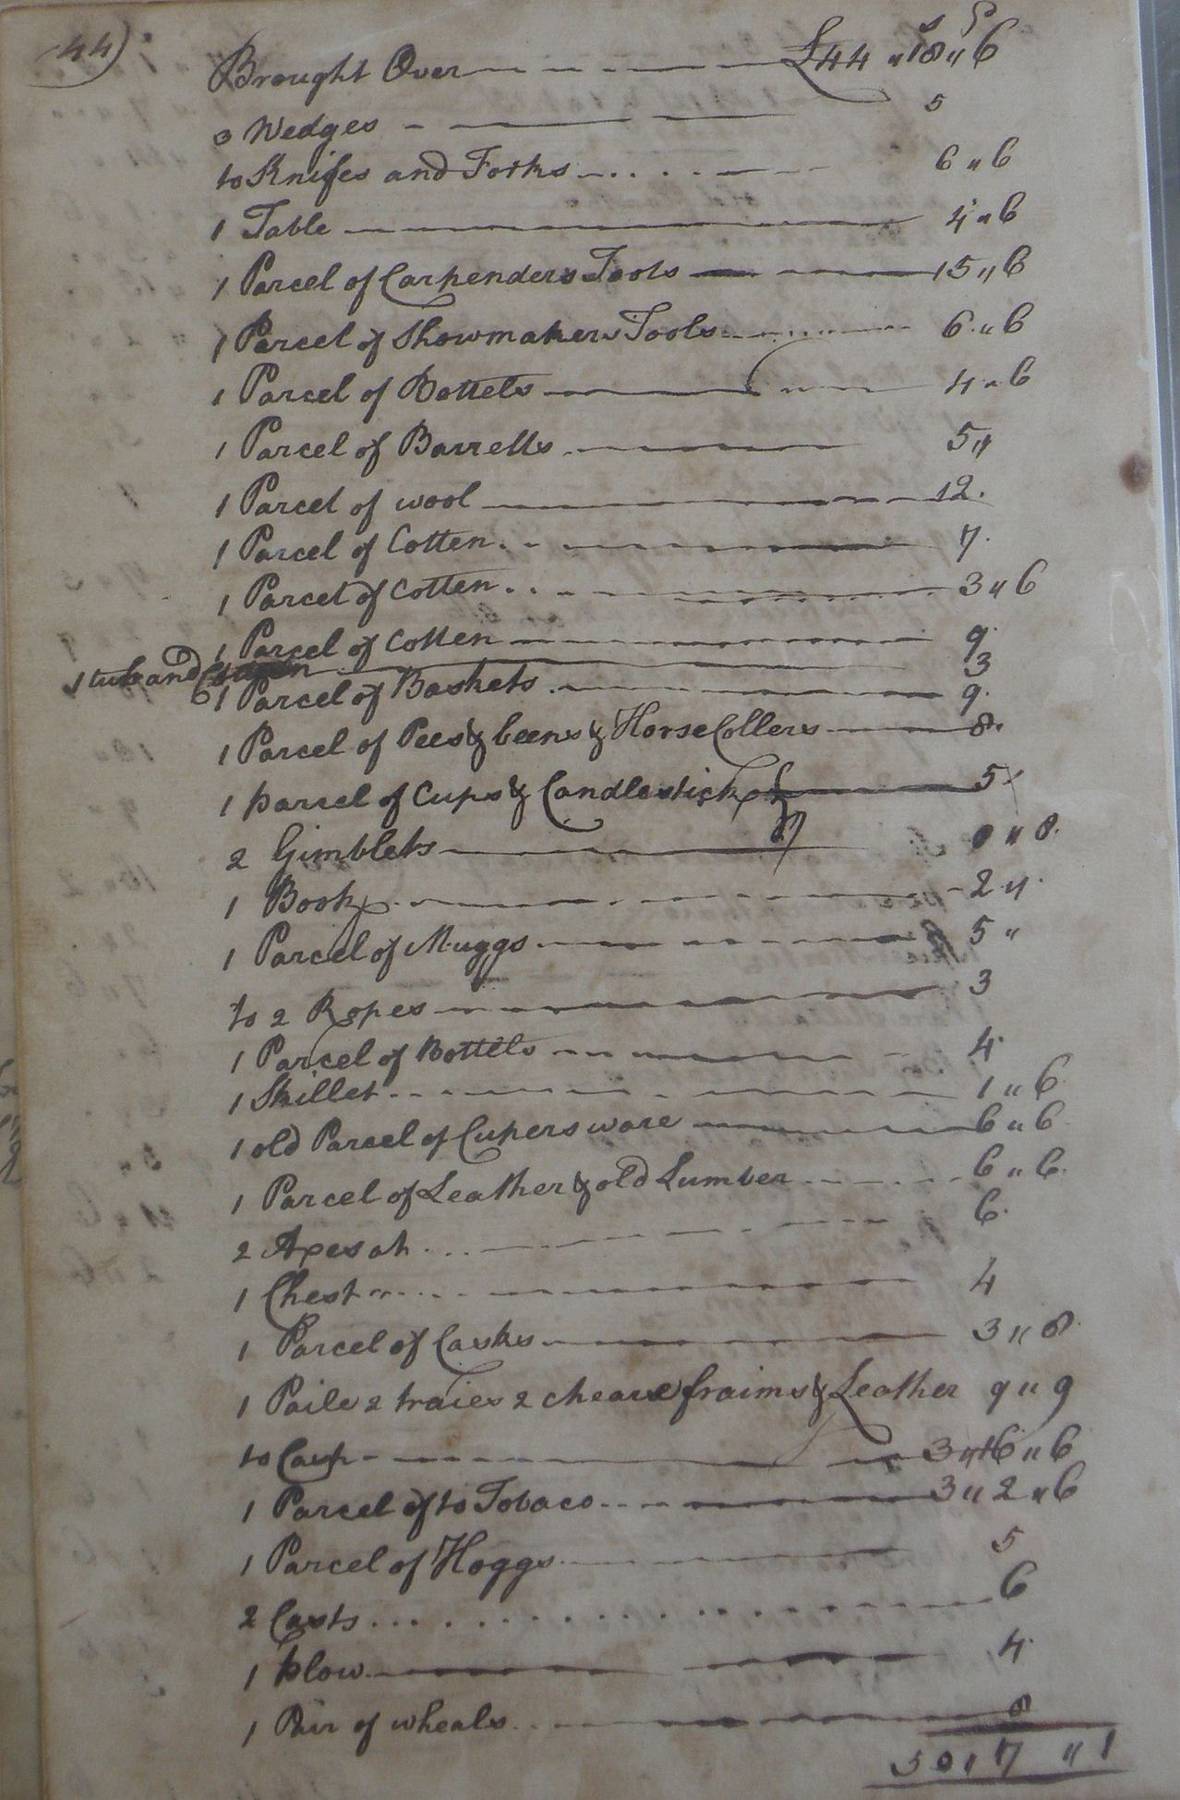 44)
s p
Brought Over £44 " 18 " 6
3 Wedges 5
to Knifes and Forks 6 " 6
1 Table 4 " 6
1 Parcel of Carpenders Tools 15 " 6
1 Parcel of Showmakers Tools 6 " 6
1 Parcel of Bottels 4 " 6
1 Parcel of Barrells 5 "
1 Parcel of wool 12
1 Parcel of Cotten 7
1 Parcel of Cotten 3 " 6
1 Parcel of Cotten 9
1 tub and 3
1 Parcel of Baskets 9
1 Parcel of Pees & beens & Horse Collers 8
1 parcel of Cups & Candlestick 5
2 Gimblets 0 " 8
1 Book 2 "
1 Parcel of Muggs 5 "
to 2 Ropes 3
1 Parcel of Bottels 4
1 Skillet 1 " 6
1 old Parcel of Cupers ware 6 " 6
1 Parcel of Leather & old Lumber 6 " 6
2 Axes at 6
1 Chest 4
1 Parcel of Casks 3 " 8
1 Paile 2 traies 2 cheare fraims & Leather 9 " 9
to Cash 3 " 16 " 6
1 Parcel of to Tobaco 3 " 2 " 6
1 Parcel of Hoggs 5
2 Casts 6
1 plow 4
1 Pair of wheals 8
50 17 " 1